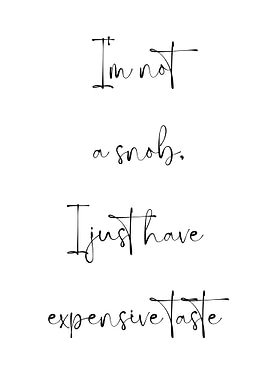 I'm not
a snob,
I just have
expensive taste